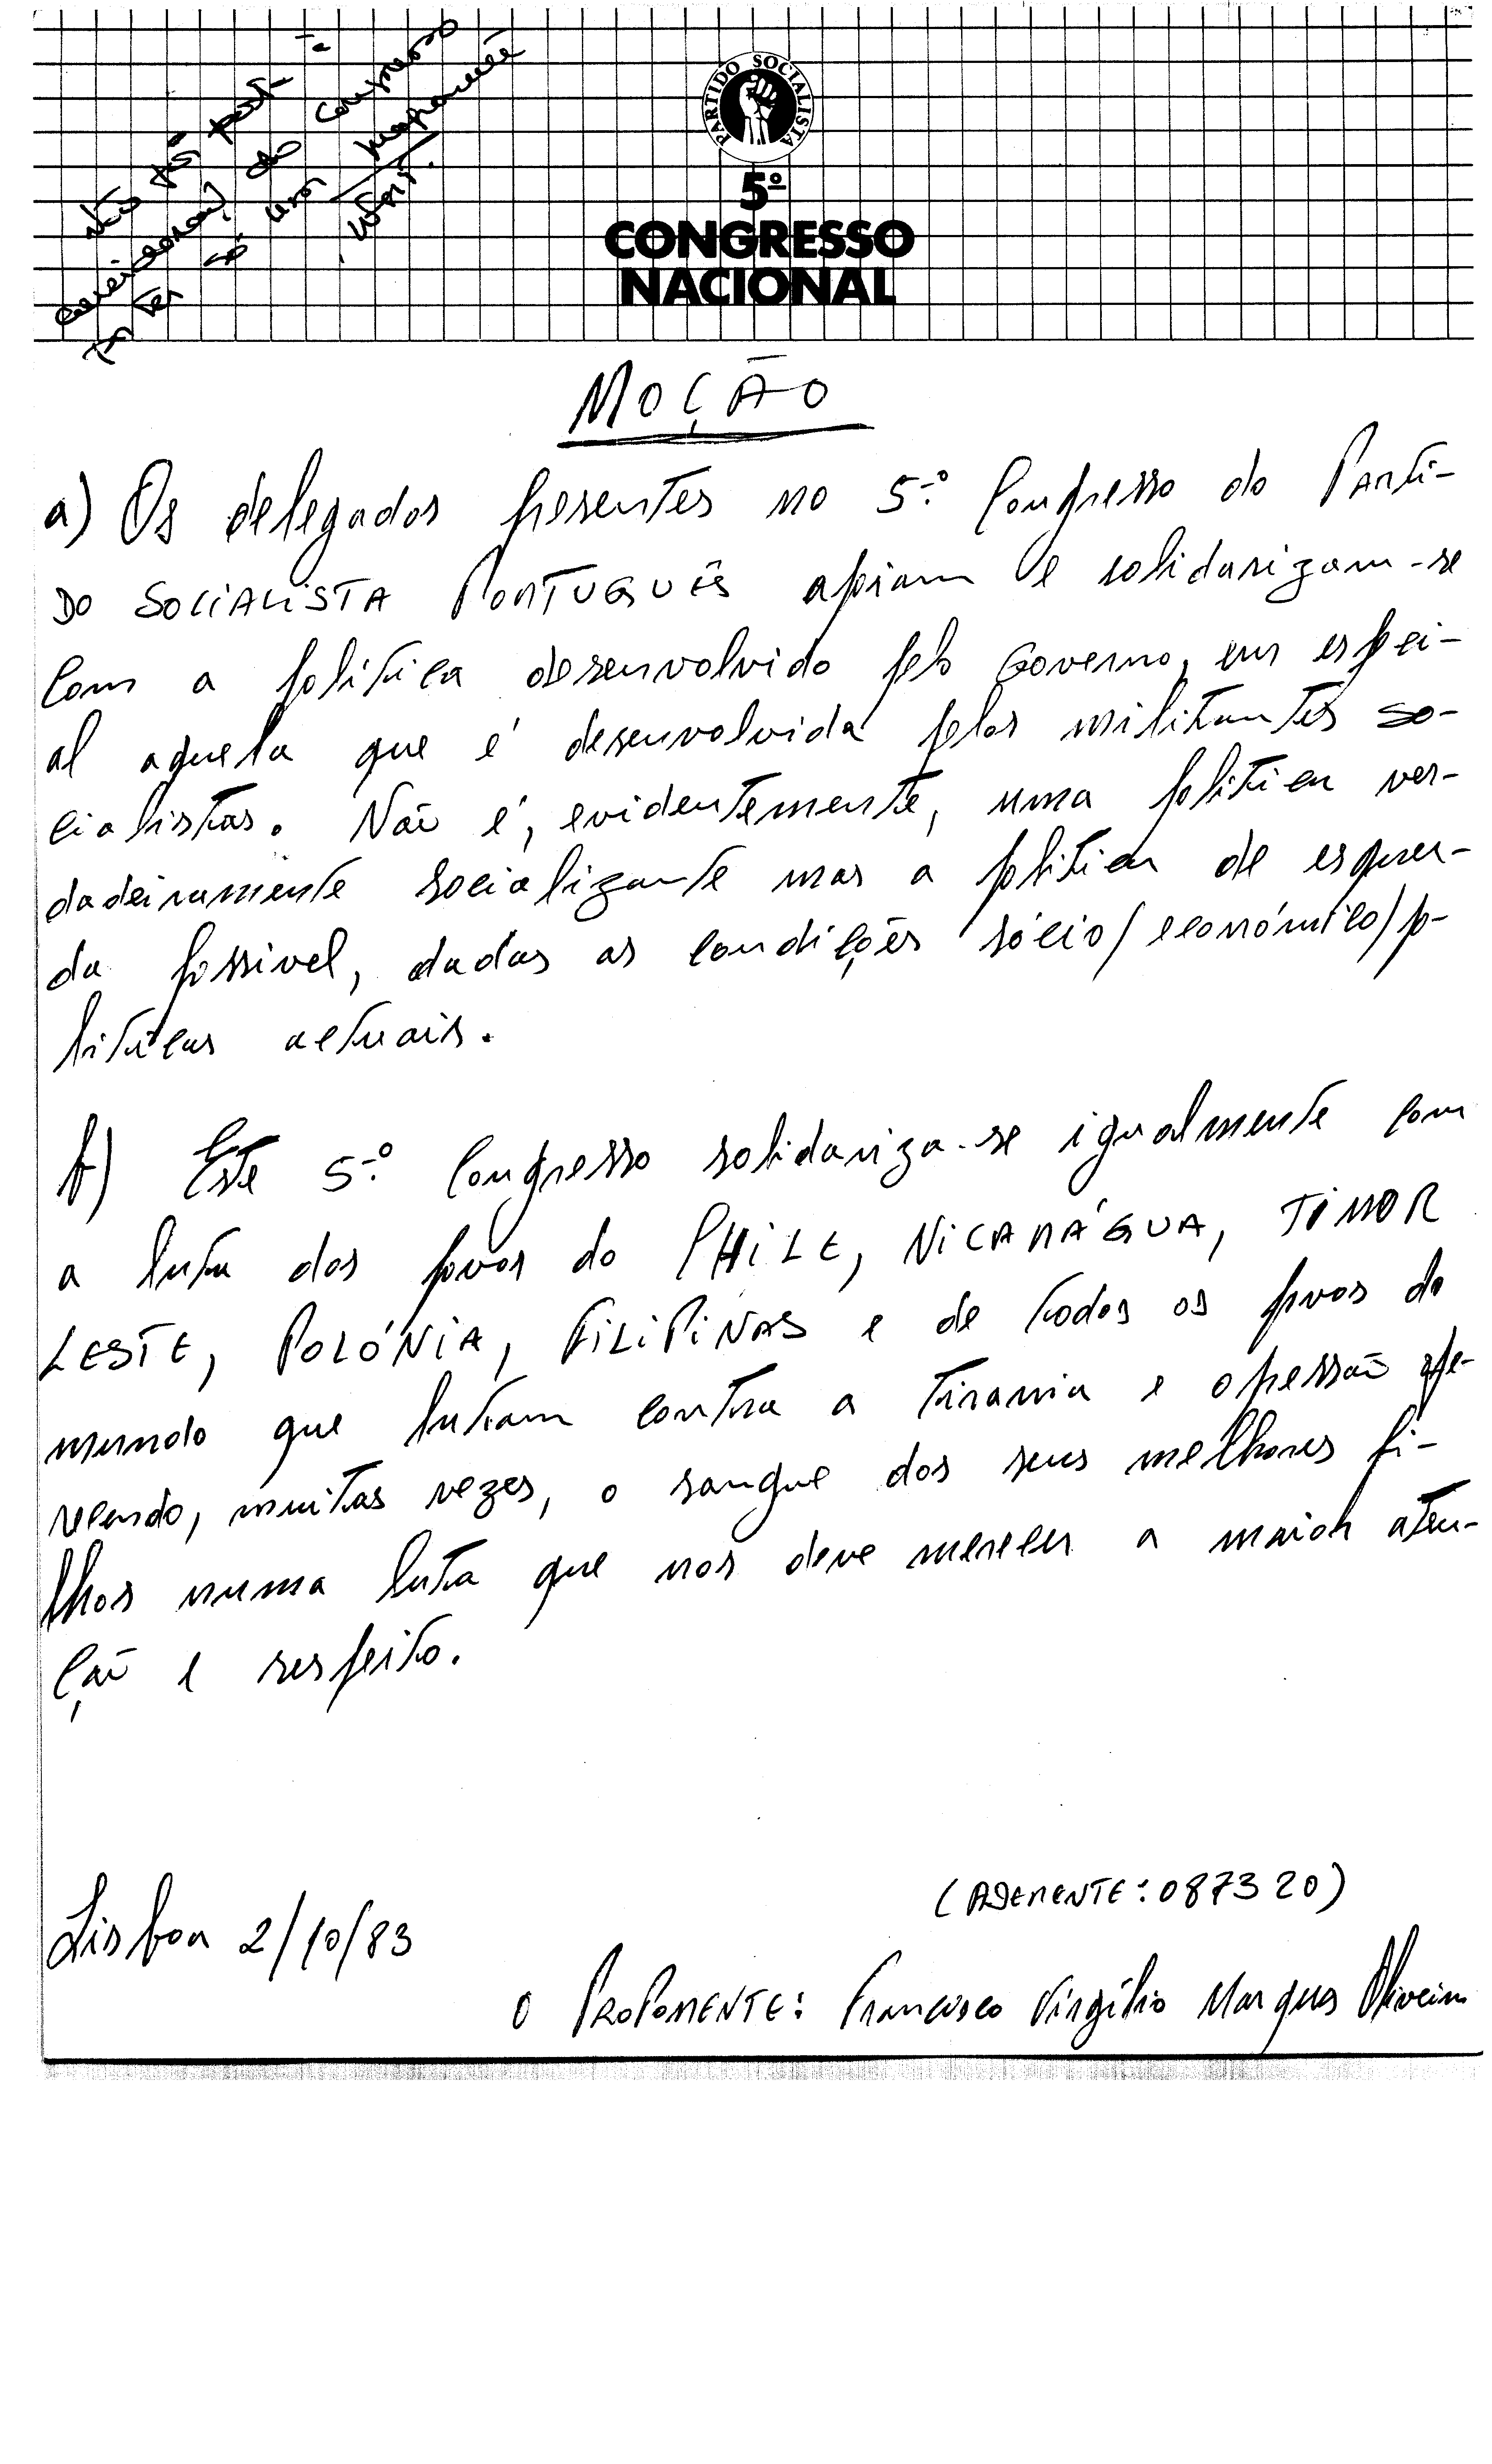 PARTIDO SOCIALISTA
5º
CONGRESSO
NACIONAL
Não foi
do Congresso
por ter só uma
MOÇÃO
a) Os delegados presentes no 5.º Congresso do Parti-
do SOCIALISTA PORTUGUÊS apoiam e solidarizam-se
com a política desenvolvido pelo Governo, em espci-
al aquela que é desenvolvida pelos militantes so-
cialistas. Não é, evidentemente, uma política ver-
dadeiramente socializante mas a política de esquer-
da possível, dadas as condições sócio/económico/po-
líticas actuais.
b) Este 5.º Congresso solidariza-se igualmente com
a luta dos povos do CHILE, NICARÁGUA, TIMOR
LESTE, POLÓNIA, FILIPINAS e de todos os povos do
mundo que lutam contra a tirania e opressão ofe-
recendo, muitas vezes, o sangue dos seus melhores fi-
lhos numa luta que nos deve merecer a maior aten-
ção e respeito.
(ADERENTE: 087320)
Lisboa 2/10/83
O PROPONENTE: Francisco Virgílio Marques Oliveira